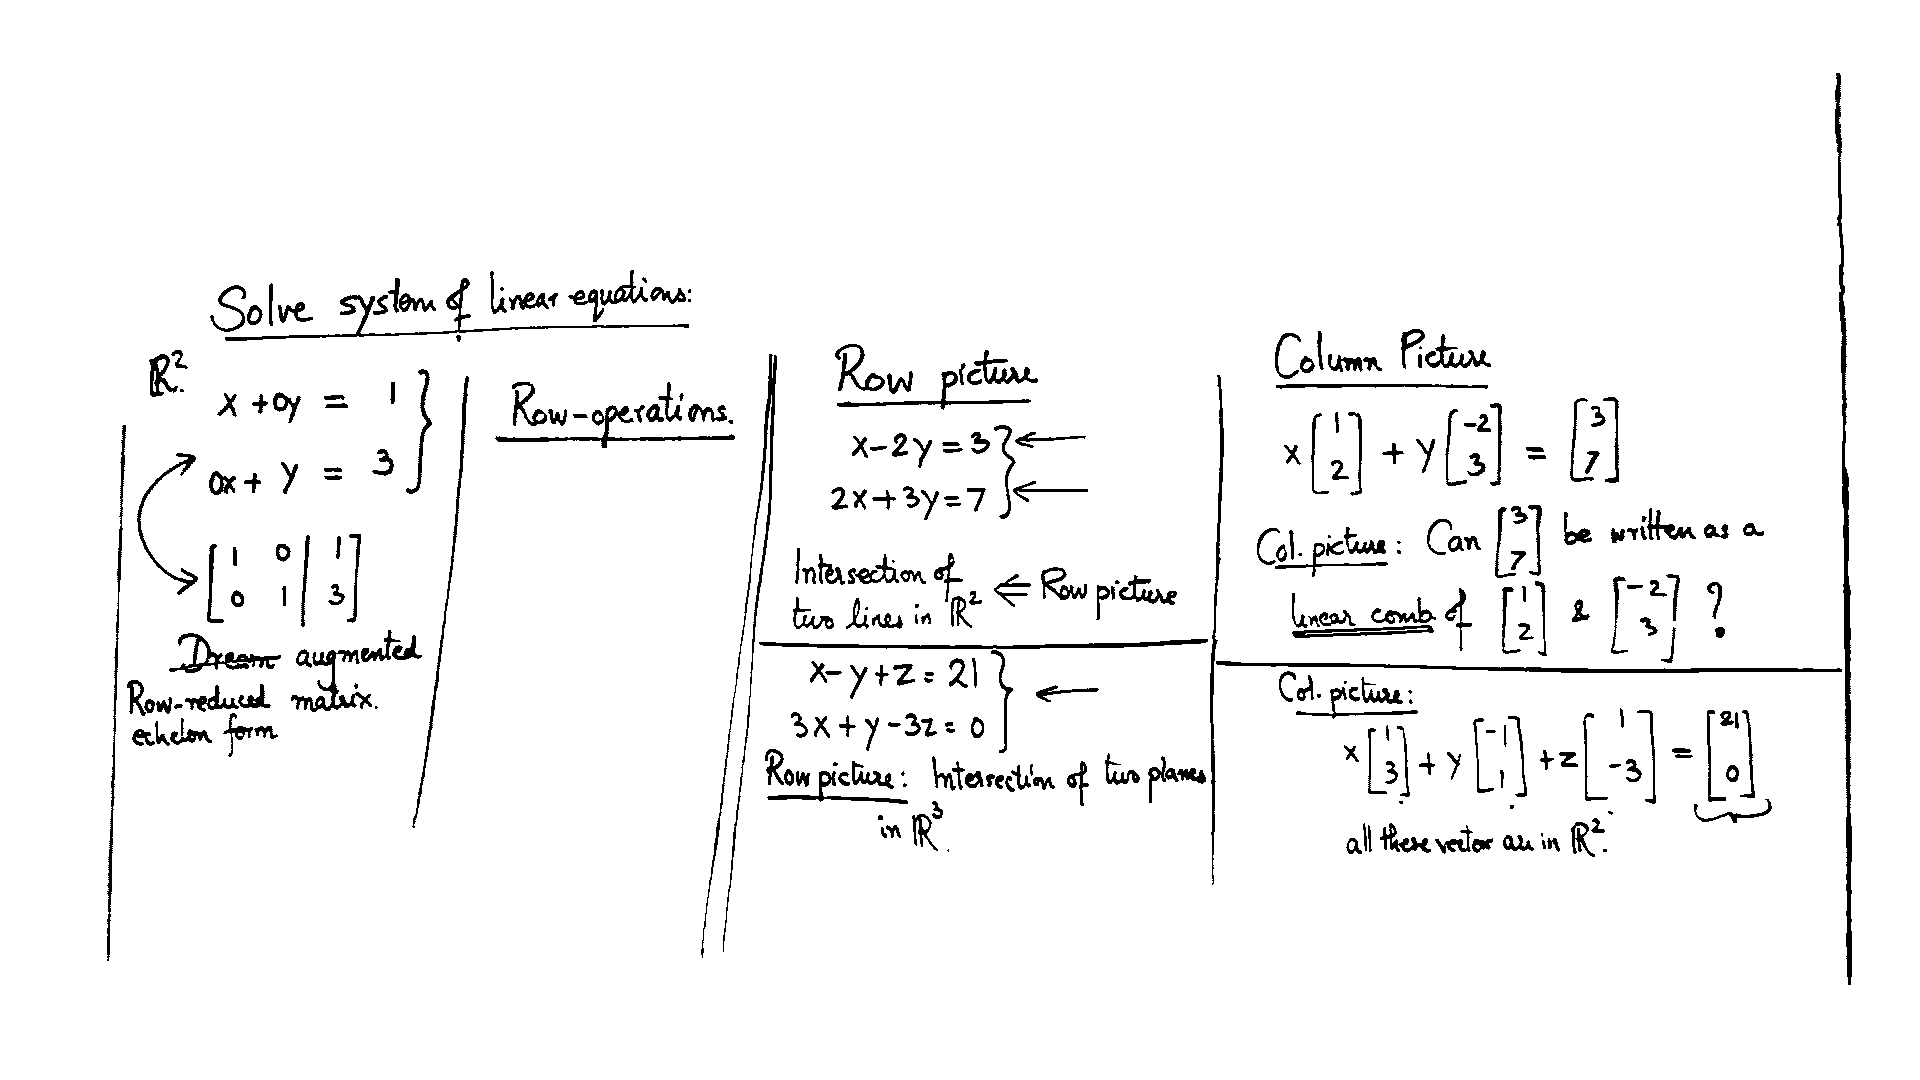 Solve system of linear equations:
ℝ².
x + 0y = 1
0x + y = 3
[1 0 | 1]
[0 1 | 3]
Dream augmented
Row-reduced matrix.
echelon form
Row-operations.
Row picture
x - 2y = 3
2x + 3y = 7
Intersection of
two lines in ℝ² ⇐ Row picture
x - y + z = 21
3x + y - 3z = 0
Row picture: Intersection of two planes
in ℝ³.
Column Picture
x [1 2] + y [-2 3] = [3 7]
Col. picture: Can [3 7] be written as a
linear comb of [1 2] & [-2 3] ?
Col. picture:
x [1 3] + y [-1 1] + z [1 -3] = [21 0]
all these vector are in ℝ².